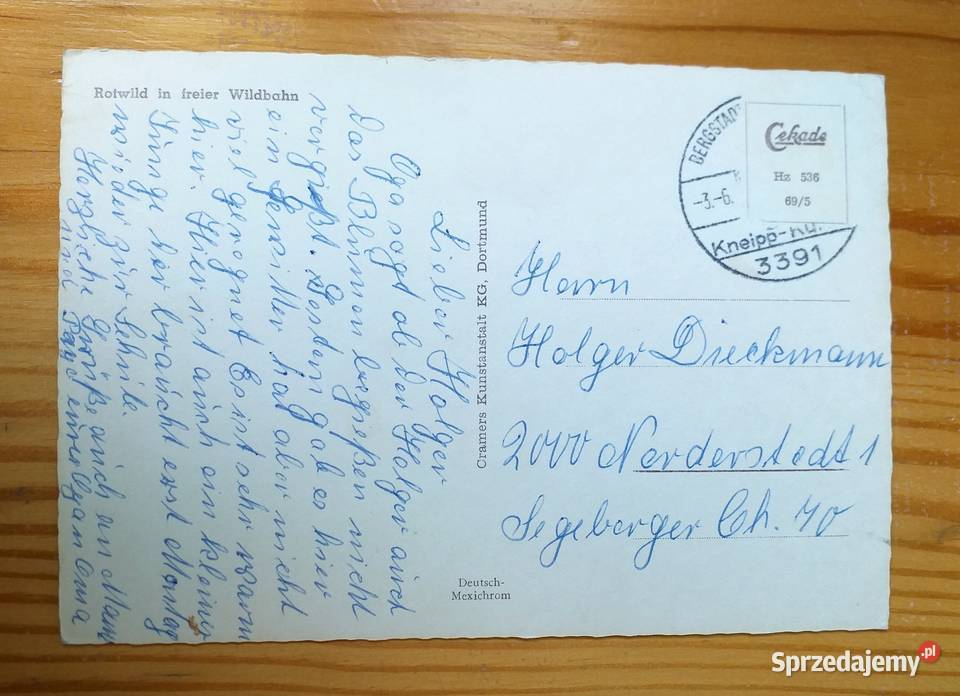 Rotwild in freier Wildbahn
Lieber Holger
Opa sagt ob der Holger auch
das Blumen begießen nicht
vergißt. Gestern gab es hier
ein Gewitter hat aber nicht
viel geregnet Es ist sehr warm
hier. Hier ist auch ein kleiner
Junge der braucht erst Montag
wieder zur Schule.
Herzliche Grüße auch an Mama
und Papi eure Opa u Oma
Cramers Kunstanstalt KG, Dortmund
Deutsch-
Mexichrom
BERGSTADT
-3.-6.
Kneipp-Ku.
3391
Cekade
Hz 536
69/5
Herrn
Holger Dieckmann
2000 Norderstedt 1
Segeberger Ch. 40
Sprzedajemy.pl